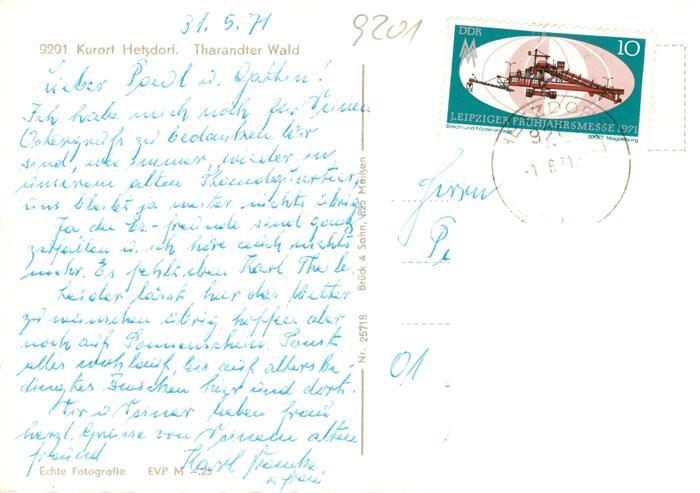 31. 5. 71
9201
9201 Kurort Hetzdorf. Tharandter Wald
Lieber u. Gattin!
Ich habe mich noch für Deinen
Ostergruß zu bedanken Wir
sind, wie immer, wieder in
unserem alten
uns bleibt ja weiter nichts übrig
Ja, die freunde sind ganz
zerfallen u. ich höre auch nichts
mehr. Es fehlt eben Karl
Leider lässt hier das Wetter
zu wünschen übrig, hoffen aber
noch auf Sonnenschein. Sonst
alles wohlauf, bis auf altersbe-
dingtes hier und dort.
Dir u Deiner lieben Frau
herzl. Grüsse von Deinem alten
freund Karl
u. frau
Echte Fotografie EVP M –.25
Nr. 25718 Brück & Sohn, 895 Meißen
DDR
10
LEIPZIGER FRÜHJAHRSMESSE 1971
Brech- und Förderanlage
SKET Magdeburg
-1. 6. 71
Herrn
01